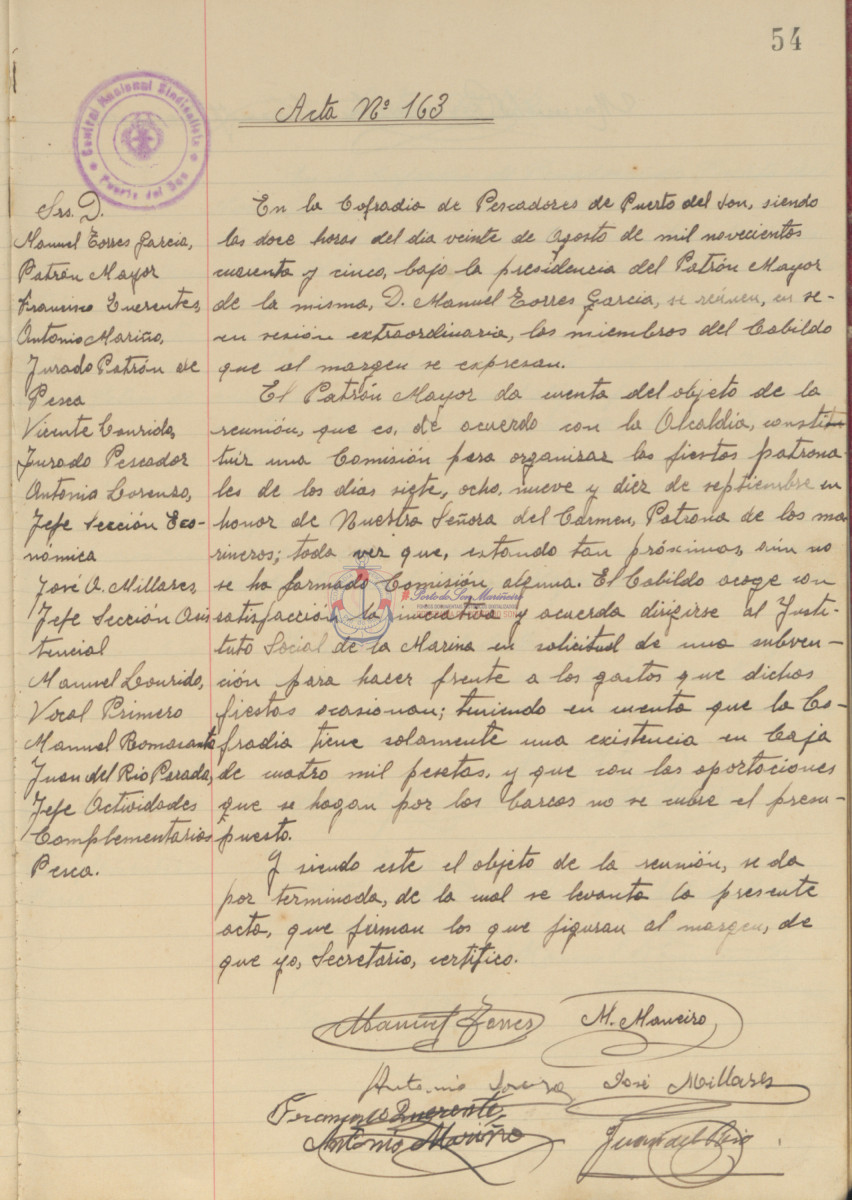 54
Acta Nº 163
Central Nacional Sindicalista
Puerto del Son
Srs. D.
Manuel Torres Garcia,
Patrón Mayor
Francisco Querentes,
Antonio Mariño,
Jurado Patrón de
Pesca
Vicente Lourido,
Jurado Pescador
Antonio Lorenzo,
Jefe Sección Eco-
nómica
José A. Millares
Jefe Sección Asis
tencial
Manuel Lourido,
Vocal Primero
Manuel Romarante
Juan del Rio Parada,
Jefe Actividades
Complementarios
Pesca.
En la Cofradia de Pescadores de Puerto del Son, siendo
las doce horas del dia veinte de Agosto de mil novecientos
cuarenta y cinco, bajo la presidencia del Patrón Mayor
de la misma, D. Manuel Torres Garcia, se reúnen, en se-
en sesión extraordinaria, los miembros del Cabildo
que al margen se expresan.
El Patrón Mayor da cuenta del objeto de la
reunión, que es, de acuerdo con la Alcaldia, consti
tuir una Comisión para organizar las fiestas patrona
les de los dias siete, ocho, nueve y diez de septiembre en
honor de Nuestra Señora del Carmen, Patrona de los ma
rineros; toda vez que, estando tan próximas, aún no
se ha formado Comisión alguna. El Cabildo acoge con
satisfacción la iniciativa y acuerda dirigirse al Insti-
tuto Social de la Marina en solicitud de una subven-
ción para hacer frente a los gastos que dichas
fiestas ocasionan; teniendo en cuenta que la Co-
fradia tiene solamente una existencia en Caja
de cuatro mil pesetas, y que con las aportaciones
que se hagan por los barcos no se cubre el presu-
puesto.
Y siendo este el objeto de la reunión, se da
por terminada, de la cual se levanta la presente
acta, que firman los que figuran al margen, de
que yo, Secretario, certifico.
Porto do Son Mariñeiro
Manuel Torres
M. Maneiro
Antonio Lorenzo
José Millares
Francisco Querente,
Antonio Mariño
Juan del Rio